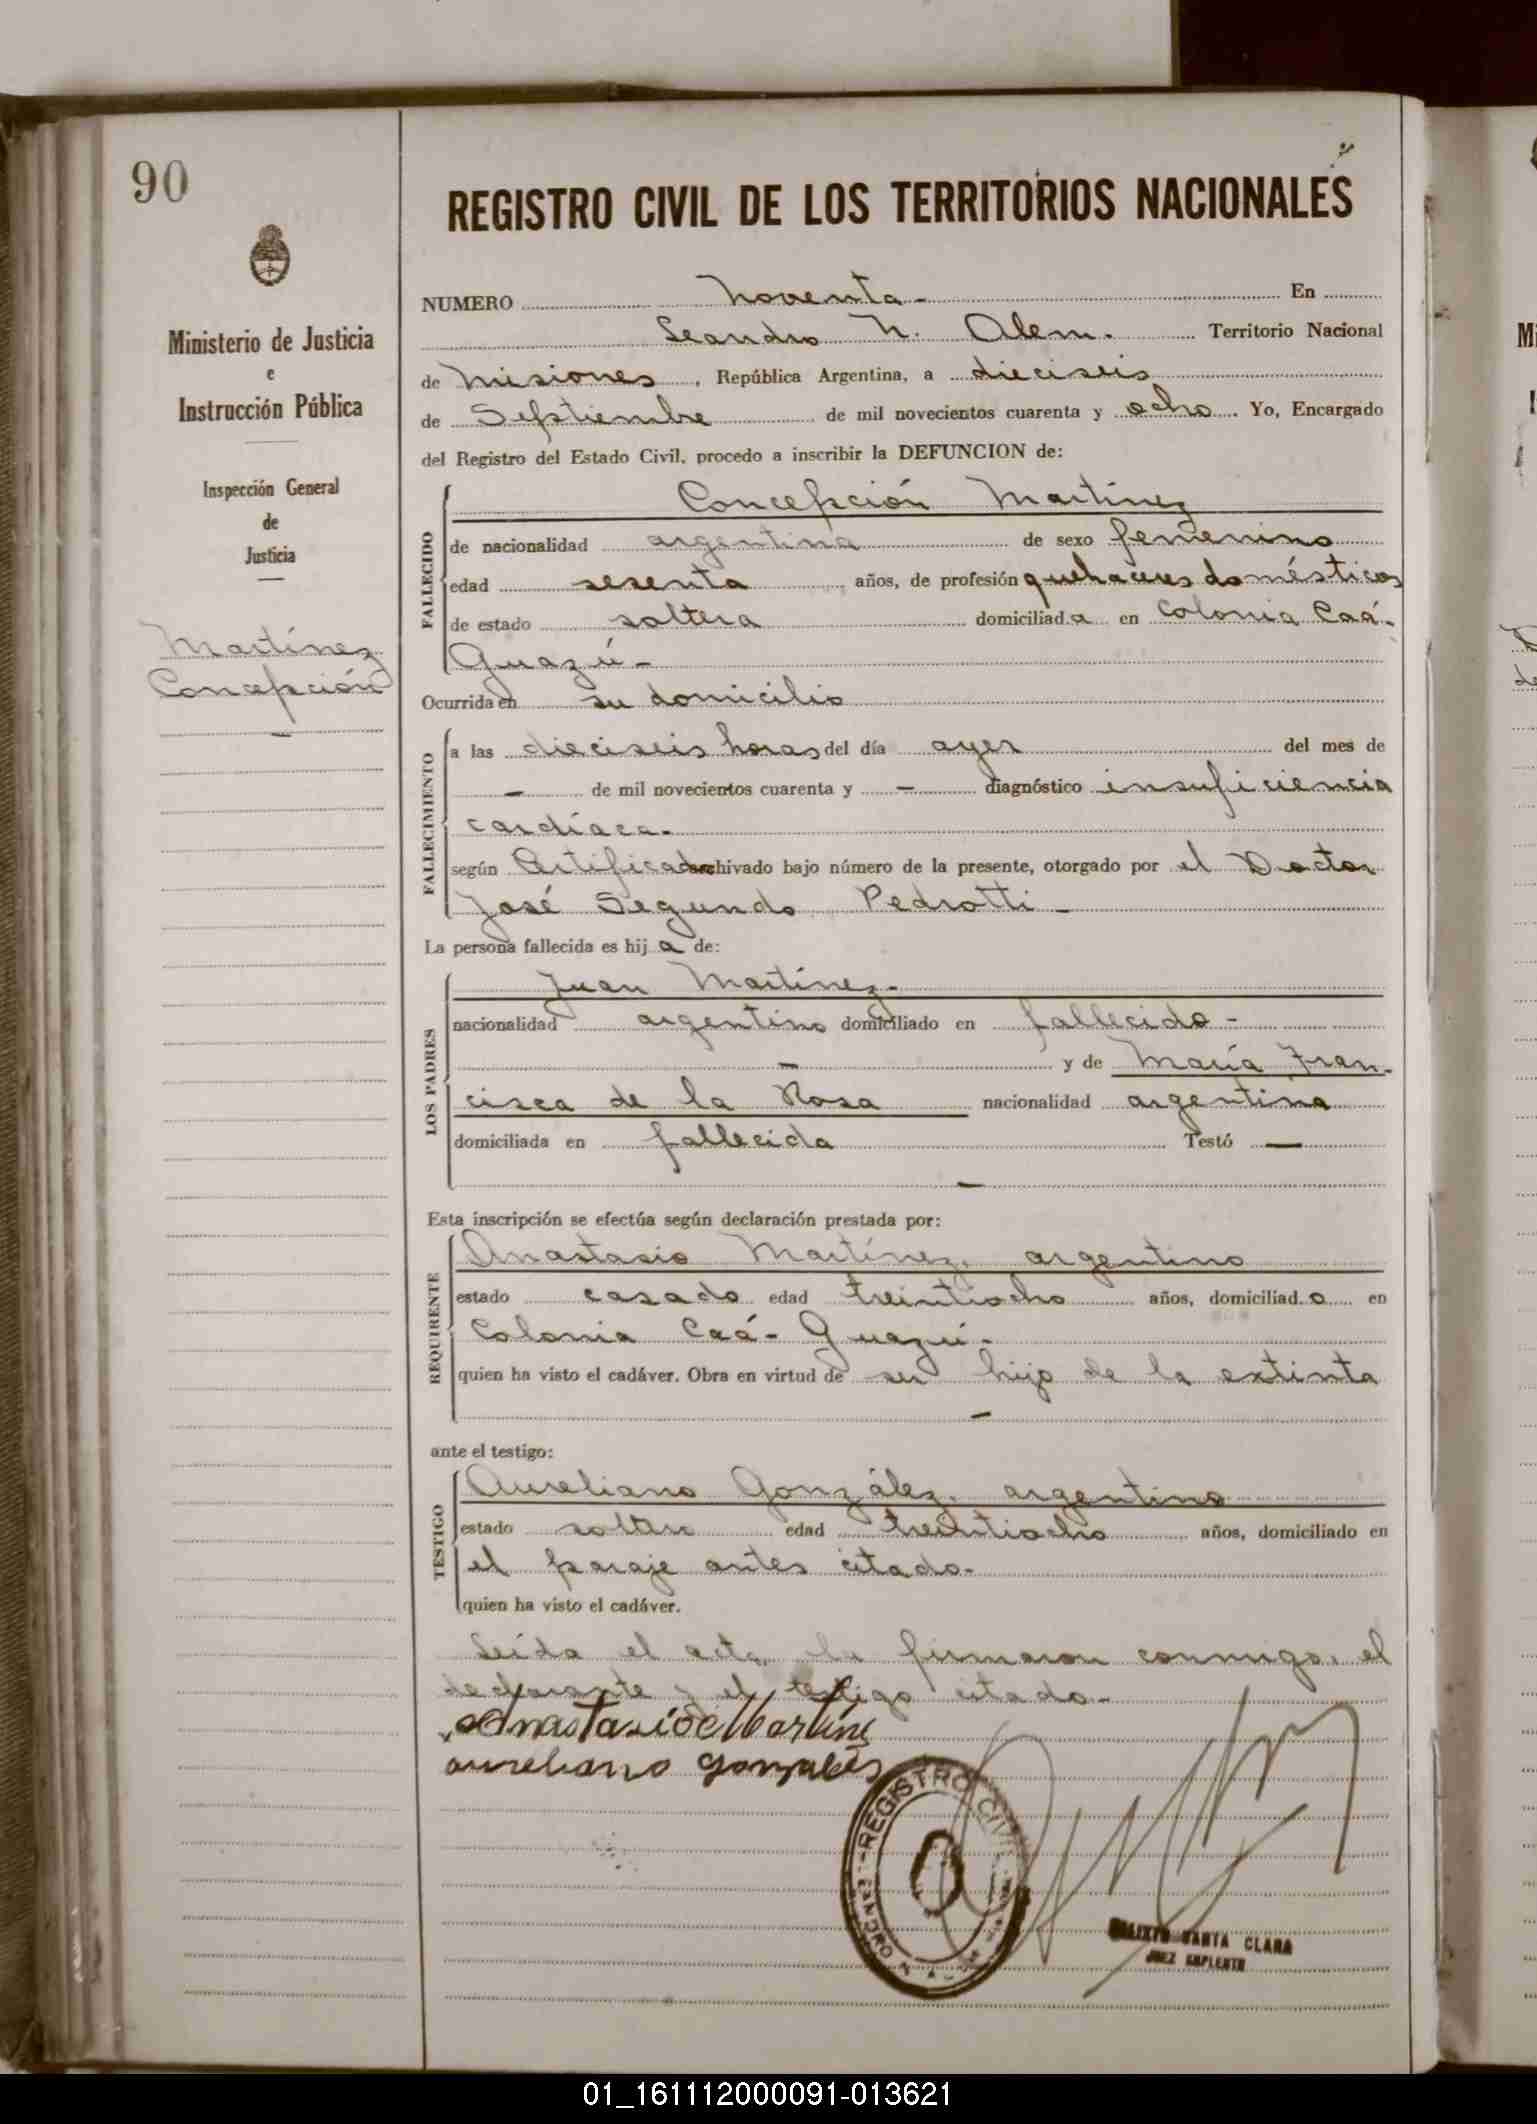 90
REGISTRO CIVIL DE LOS TERRITORIOS NACIONALES
Ministerio de Justicia
e
Instrucción Pública
Inspección General
de
Justicia
Martínez
Concepción
NUMERO Noventa- En
Leandro N. Alem. Territorio Nacional
de Misiones, República Argentina, a dieciseis
de Septiembre de mil novecientos cuarenta y ocho. Yo, Encargado
del Registro del Estado Civil, procedo a inscribir la DEFUNCION de:
FALLECIDO
Concepción Martínez
de nacionalidad argentina de sexo femenino
edad sesenta años, de profesión quehaceres domésticos
de estado soltera domiciliada en Colonia Caá-
Guazú-
Ocurrida en su domicilio
FALLECIMIENTO
a las dieciseis horas del día ayer del mes de
- de mil novecientos cuarenta y - diagnóstico insuficiencia
cardíaca.
según Certificado archivado bajo número de la presente, otorgado por el Doctor
José Segundo Pedrotti-
La persona fallecida es hija de:
LOS PADRES
Juan Martínez-
nacionalidad argentino domiciliado en fallecido-
- y de María Fran-
cisca de la Rosa nacionalidad argentina
domiciliada en fallecida Testó —
-
Esta inscripción se efectúa según declaración prestada por:
REQUIRENTE
Anastasio Martínez, argentino
estado casado edad treintiocho años, domiciliado en
Colonia Caá-Guazú-
quien ha visto el cadáver. Obra en virtud de ser hijo de la extinta
-
ante el testigo:
TESTIGO
Aureliano González, argentino
estado soltero edad treintiocho años, domiciliado en
el paraje antes citado-
quien ha visto el cadáver.
Leída el acta la firmaron conmigo, el
declarante y el testigo citado-
Anastasio Martine
aureliano gonzales
REGISTRO CIVIL
SANTA CLARA
JUEZ SUPLENTE
01_161112000091-013621